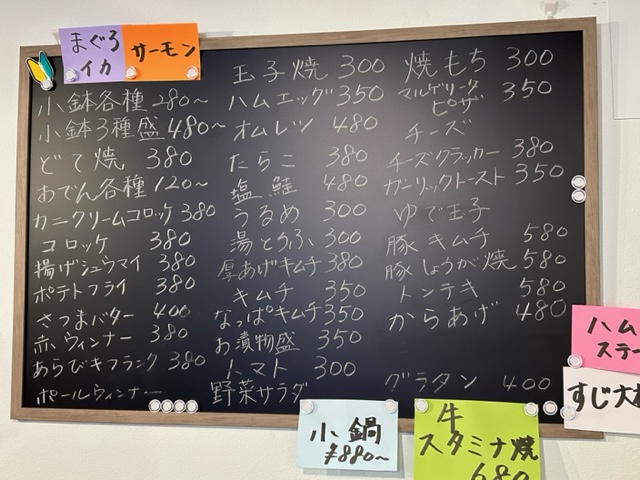 まぐろ
イカ
サーモン
小鉢各種 280〜
小鉢3種盛 480〜
どて焼 380
おでん各種 120〜
カニクリームコロッケ 380
コロッケ 380
揚げシュウマイ 380
ポテトフライ 380
さつまバター 400
赤ウィンナー 380
あらびきフランク 380
ポールウィンナー
玉子焼 300
ハムエッグ 350
オムレツ 480
たらこ 380
塩鮭 480
うるめ 300
湯とうふ 300
厚あげキムチ 380
キムチ 350
なっぱキムチ 350
お漬物盛 350
トマト 300
野菜サラダ
焼もち 300
マルゲリータ
ピザ 350
チーズ
チーズクラッカー 380
ガーリックトースト 350
ゆで玉子
豚キムチ 580
豚しょうが焼 580
トンテキ 580
からあげ 480
グラタン 400
小鍋
¥880〜
牛
スタミナ焼
680
ハム
ステー
すじ大